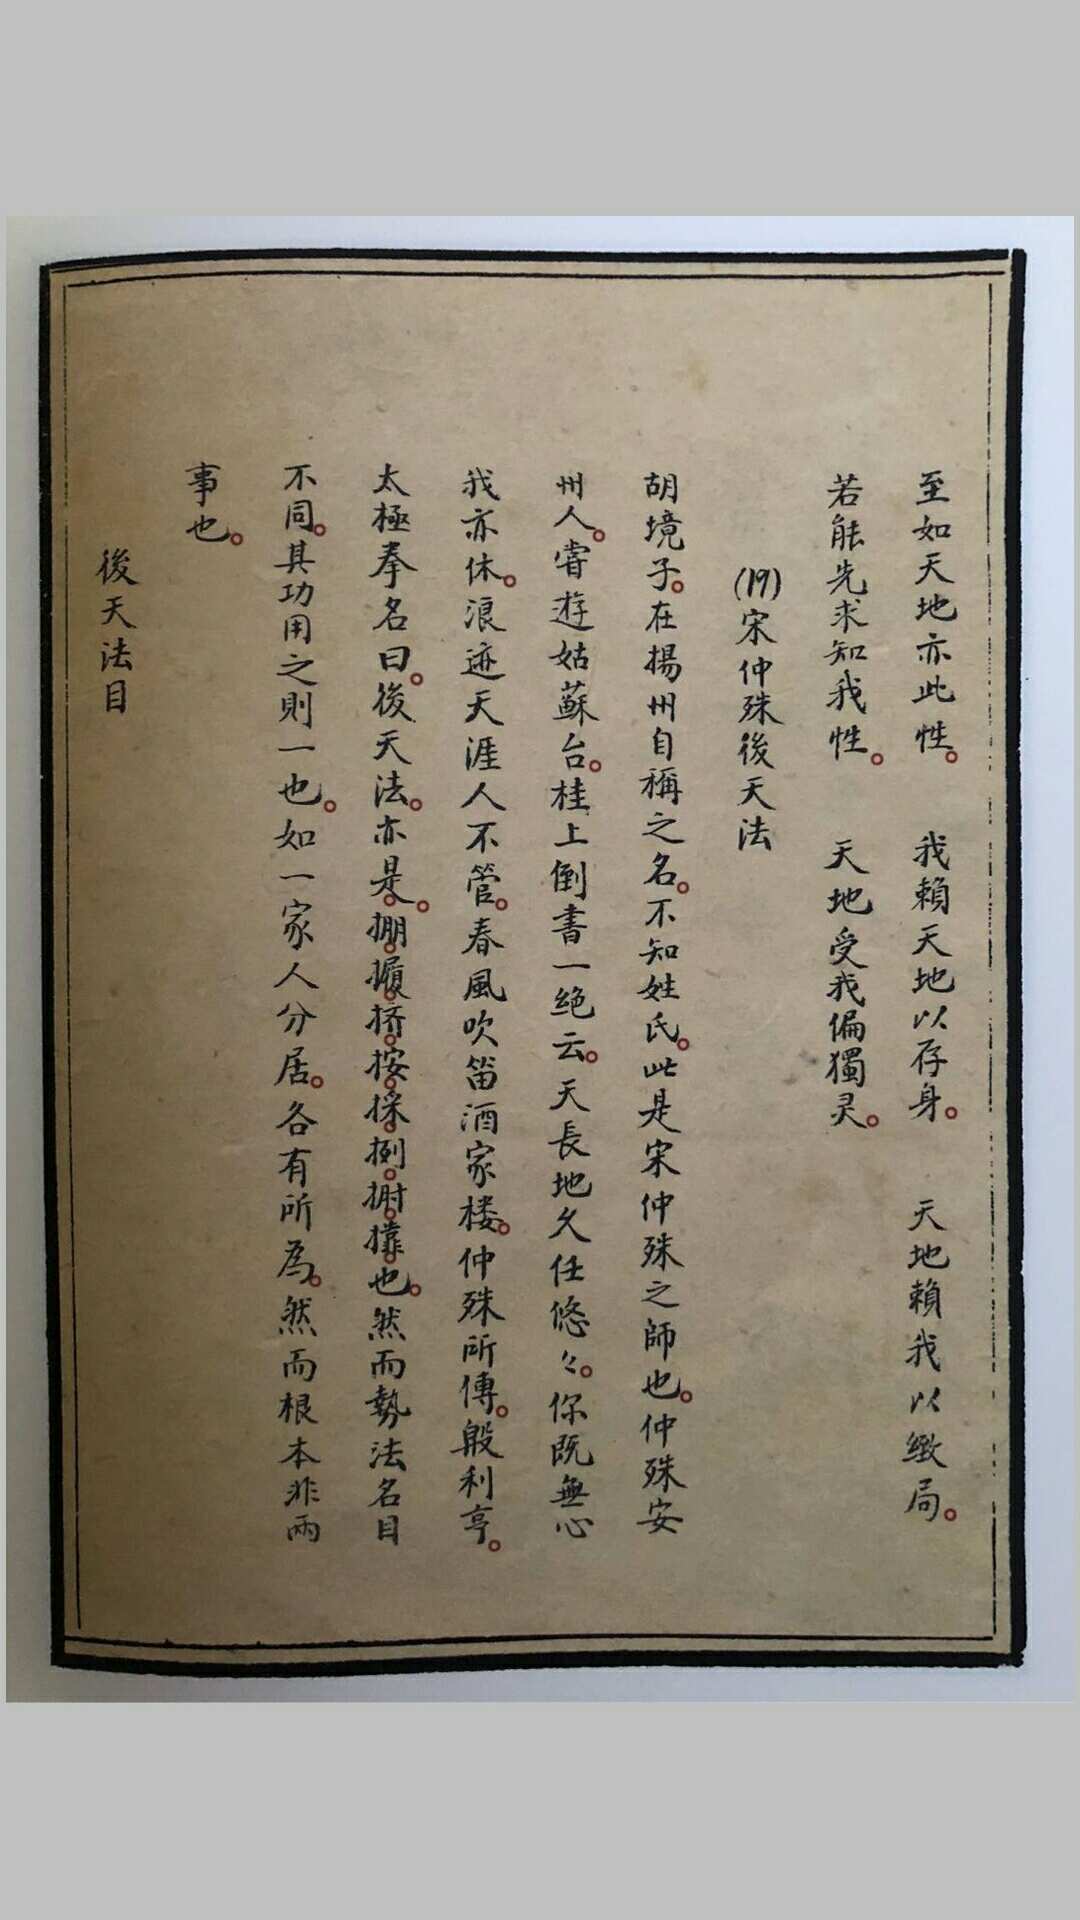 至如天地亦此性。 我賴天地以存身。 天地賴我以緻局。
若能先求知我性。 天地受我偏獨灵。
(19)宋仲殊後天法
胡境子。在揚州自稱之名。不知姓氏。此是宋仲殊之師也。仲殊安
州人。嘗遊姑蘇台。桂上倒書一绝云。天長地久任悠々。你既無心
我亦休。浪迹天涯人不管。春風吹笛酒家楼。仲殊所傳。殷利亨。
太極拳名曰。後天法。亦是。掤。履。挤。按。採。挒。挒。掱也。然而勢法名目
不同。其功用之則一也。如一家人分居。各有所為。然而根本非两
事也。
後天法目